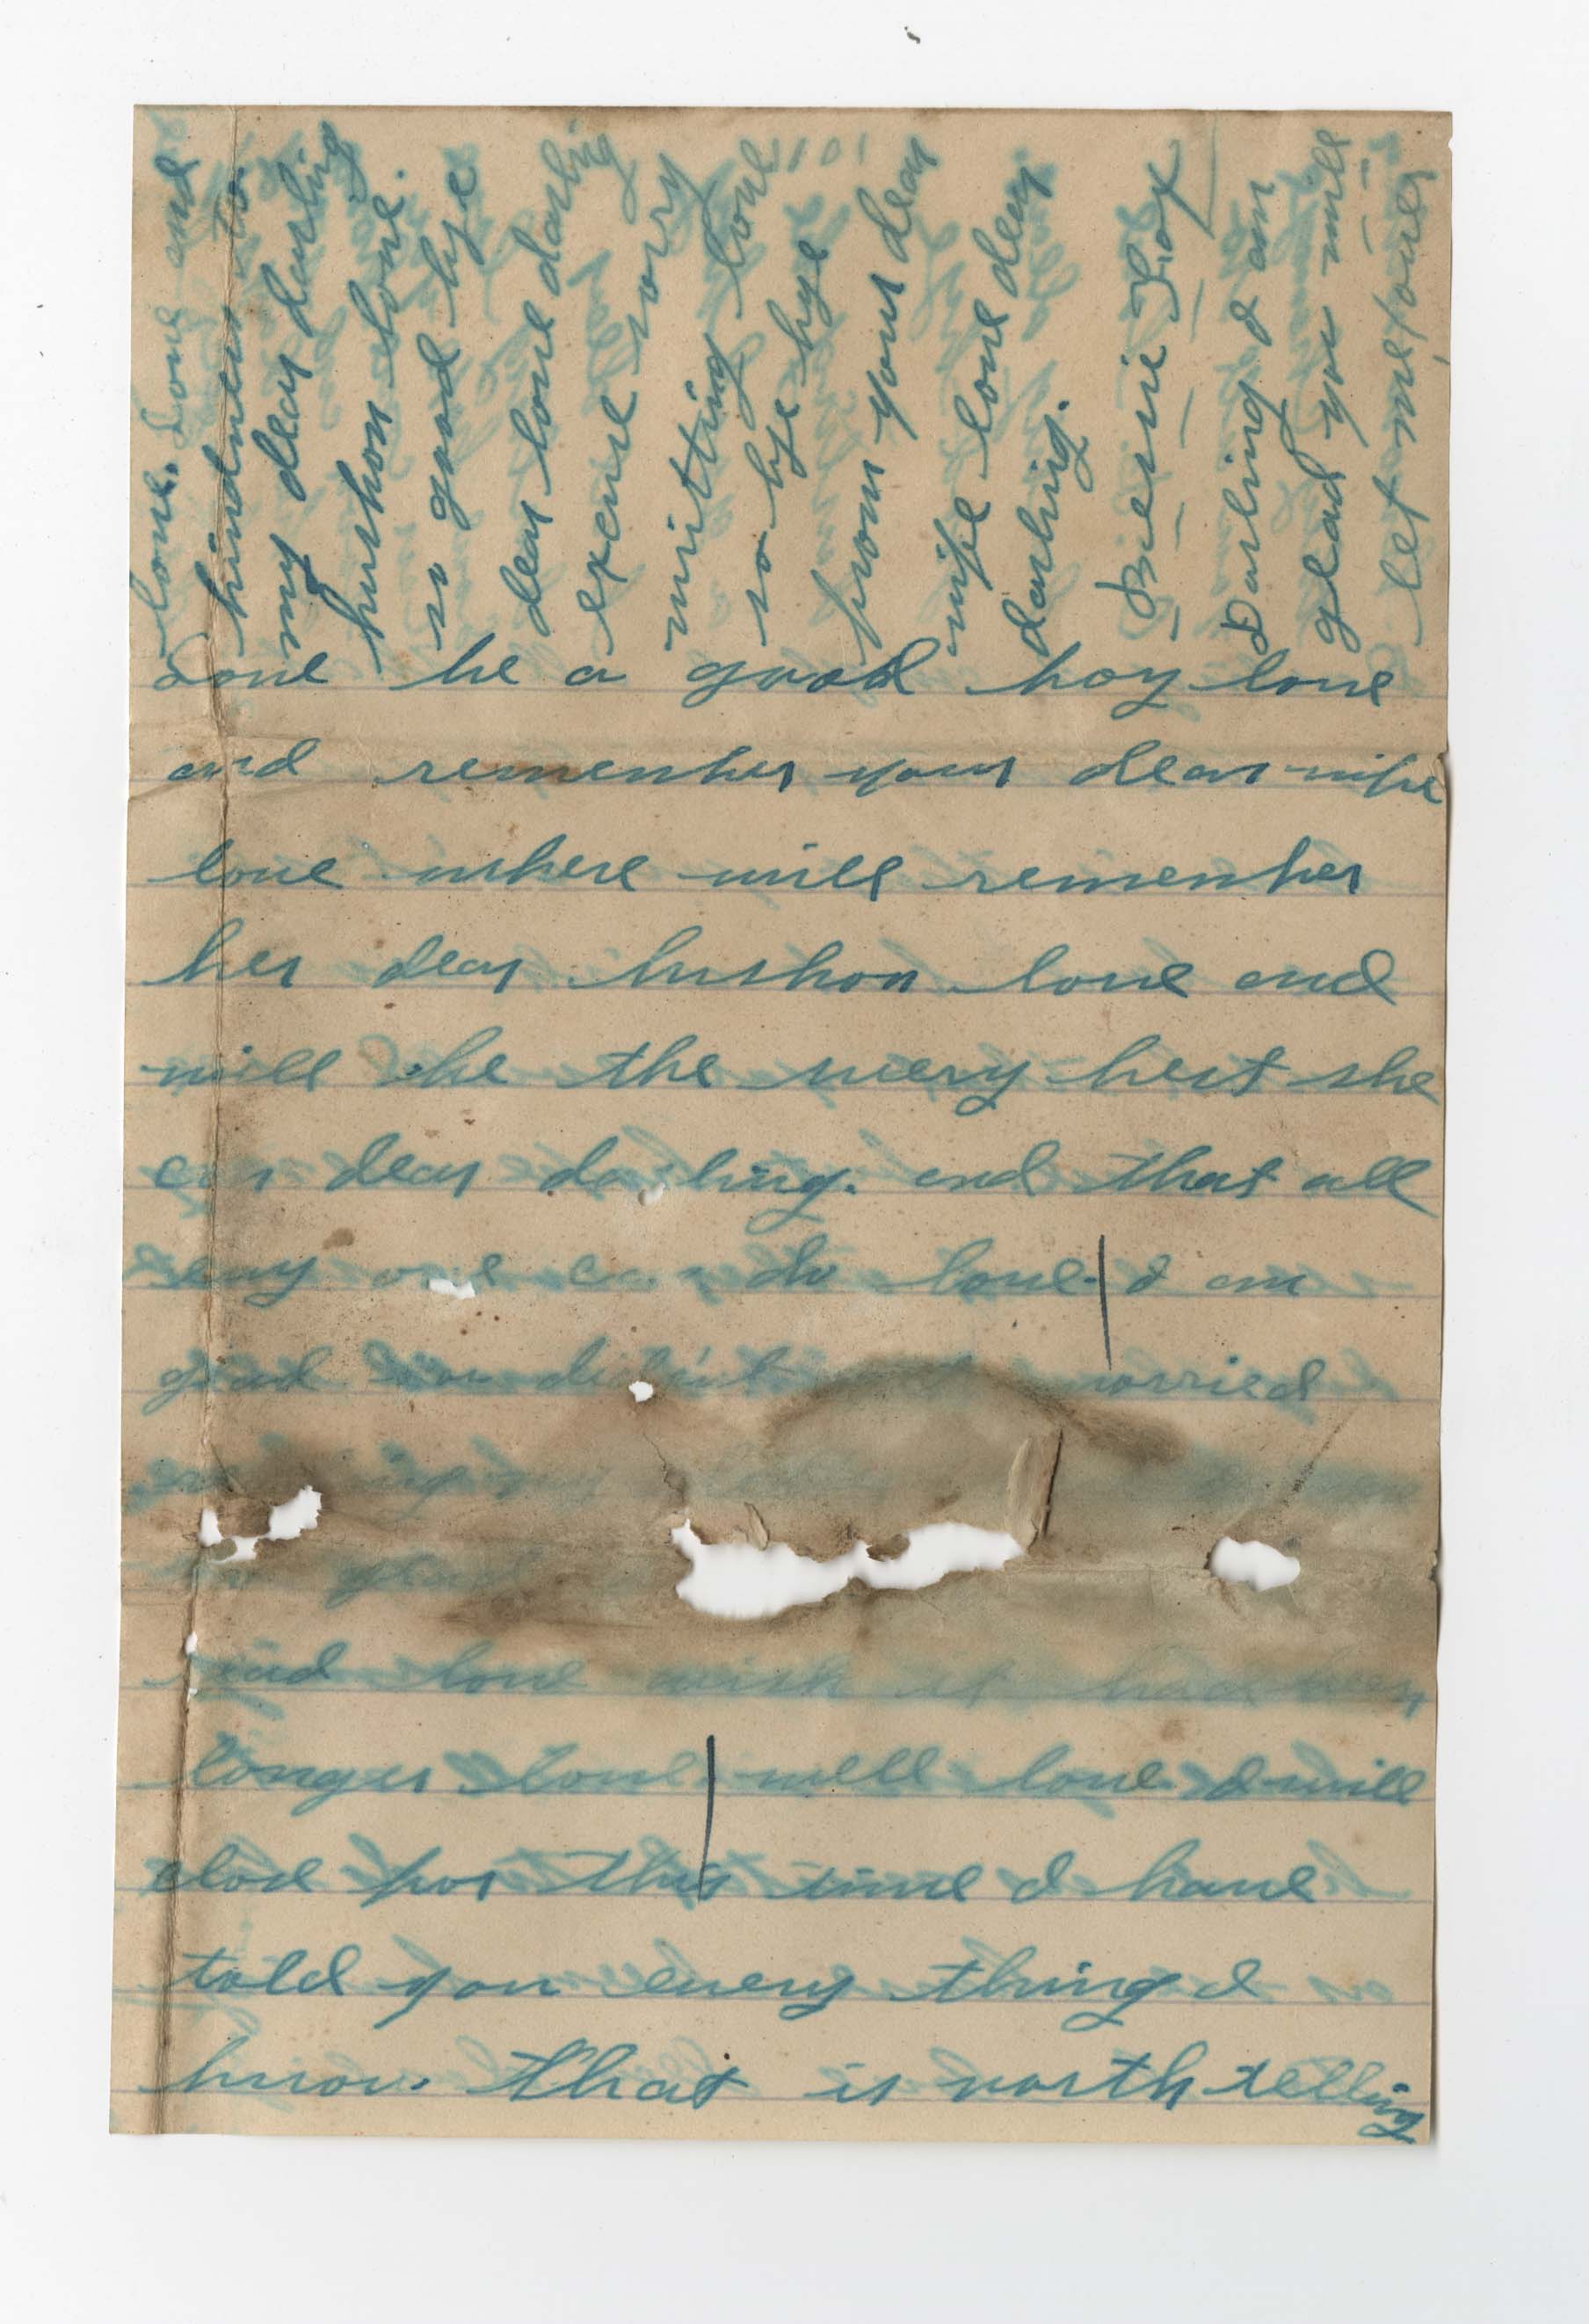 Love be a good boy love
and remember your dear wife
love where will remember
her dear husbon love and
will be the very best she
can dear darling. and that all
eny one can do love. I am
glad you didn't worried
glad
mind love wish it had been
longer love. well love I will
close for this time I have
told you every thing I
know. That is worth telling
love. Love and
kindness to
my dear darling
husbon love.
so good bye
dear love darling
excuse sorry
writting love
so bye bye
from your dear
wife love dear
darling.
Bessie Fox
Darling I am
glad you will
let me